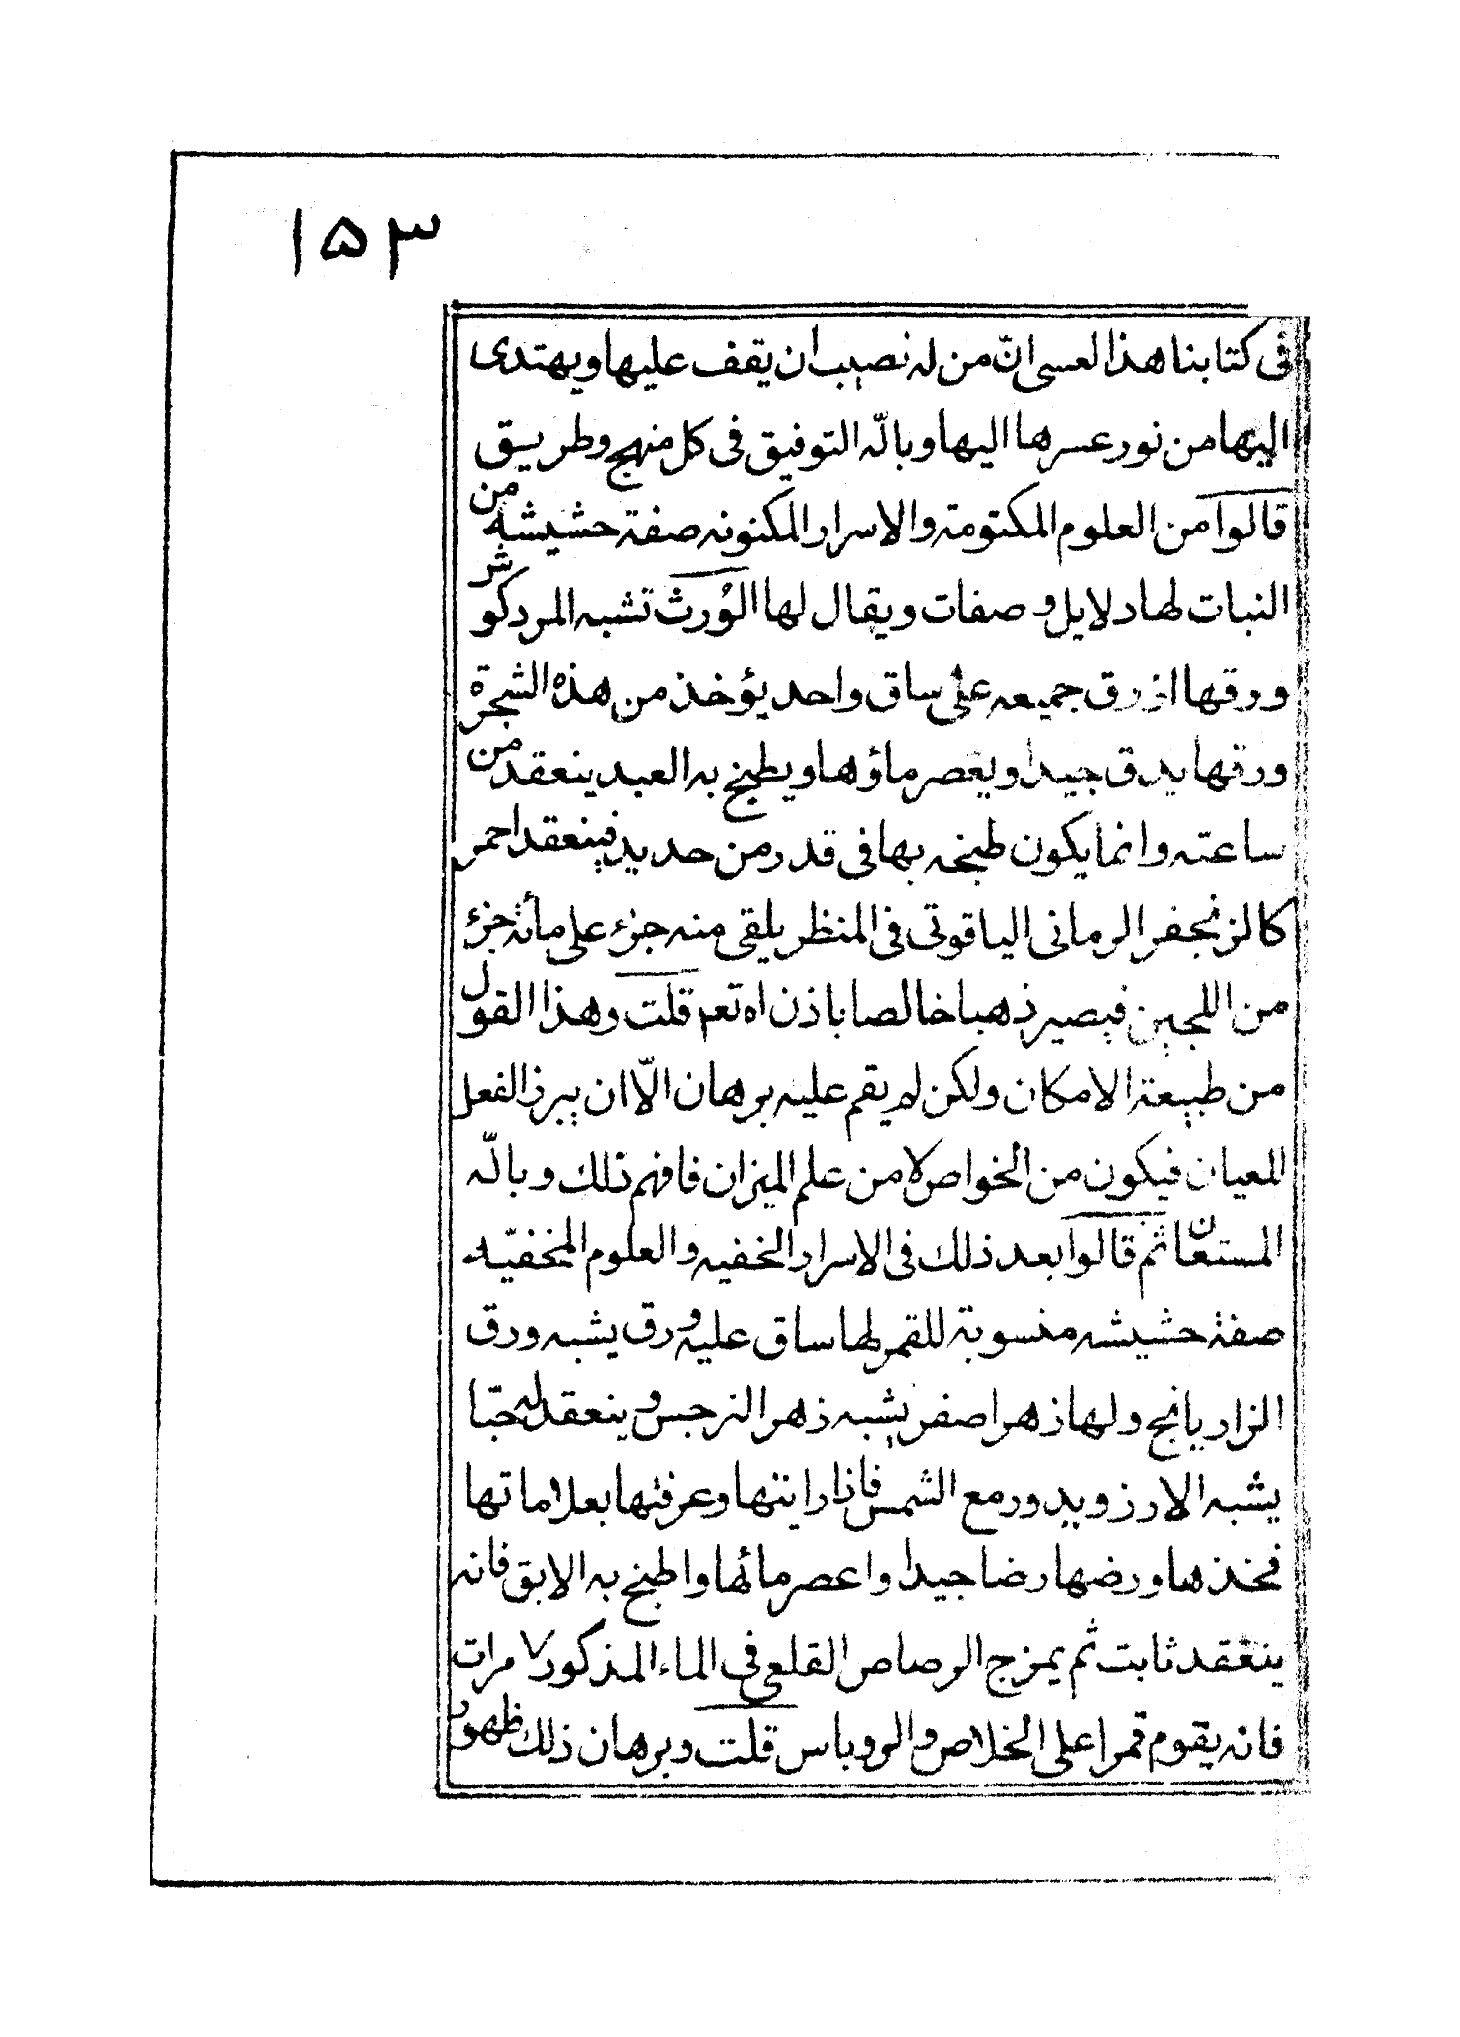 ١٥٣
فى كتابنا هذا لعسى انّ من له نصيب ان يقف عليها ويهتدى
اليها من نور عسرها اليها وباللّه التوفيق فى كل منهج وطريق
قالوا من العلوم المكتومة والاسرار المكنونه صفة حشيشه من
النبات لها دلايل و صفات ويقال لها الورث تشبه المردكوش
ورقها ازرق جميعه على ساق واحد يؤخذ من هذه الشجرة
ورقها يدق جيدا ويعصر ماؤها ويطبخ به العبد ينعقد من
ساعته وانما يكون طبخه بها فى قدر من حديد فينعقد احمر
كالزنجفر الرمانى الياقوتى فى المنظر يلقى منه جزء على مأئة جزء
من اللجين فيصير ذهبا خالصا باذن اه تعم قلت وهذا القول
من طبيعة الامكان ولكن لم يقم عليه برهان الّا ان يبرز الفعل
للعيان فيكون من الخواص لا من علم الميزان فافهم ذلك وباللّه
المستعان ثم قالوا بعد ذلك فى الاسرار الخفيه والعلوم المخفيّه
صفة حشيشه منسوبة للقمر لها ساق عليه ورق يشبه ورق
الزاريانج ولها زهر اصفر يشبه زهر النرجس وينعقد له حبّا
يشبه الارز ويدور مع الشمس فاذا رايتها وعرفتها بعلاماتها
فخذها ورضها رضا جيدا واعصر مائها واطبخ به الابق فانه
ينعقد ثابت ثم يمزج الرصاص القلعى فى الماء المذكور ٧ مرات
فانه يقوم قمرا على الخلاص والروباس قلت وبرهان ذلك ظهور